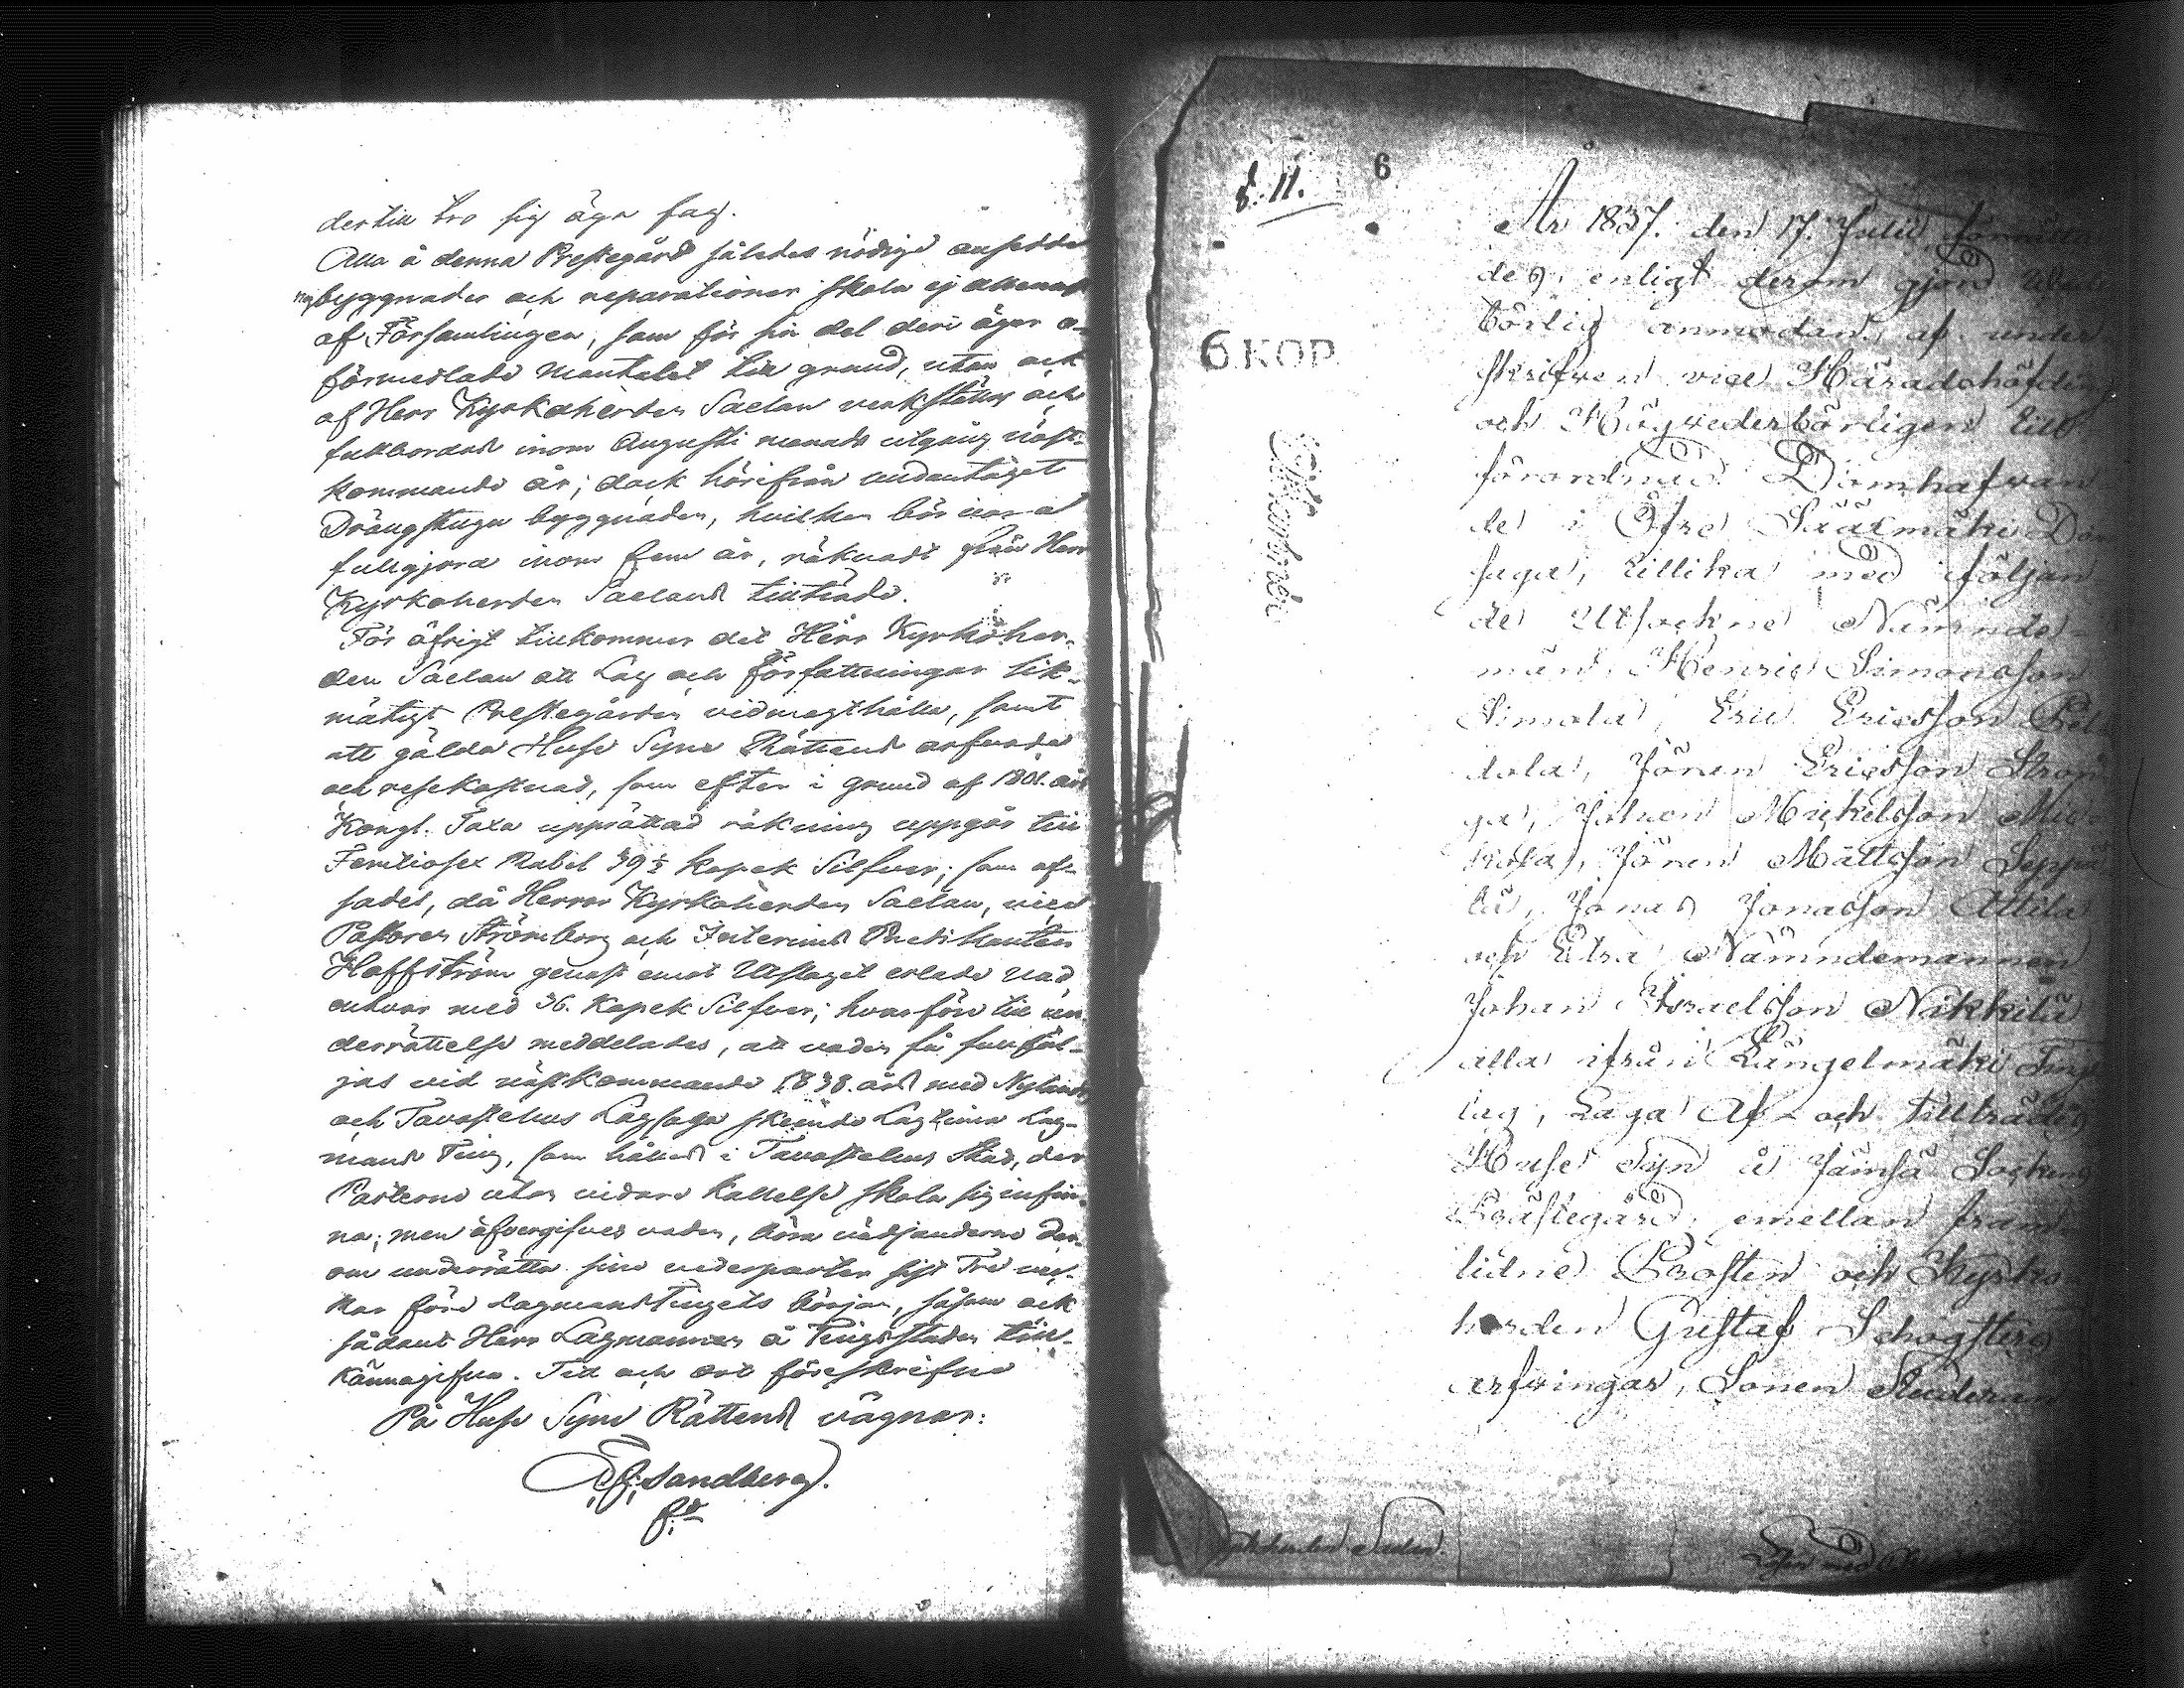 dertill tro sig äga fog.
Alla å denna Prestegård således nödige ansedde
nybyggnader och reparationer skola ej allenast
af Församlingen, som för sin del deri äger o-
förmedlade Mantalet till grund, utan ock
af Herr Kyrkoherden Saelan verkställas och
fullbordas inom Augusti månads utgång näst-
kommande år; dock härifrån undantaget
Drängstugu byggnaden, hvilken bör vara
fullgjord inom fem år, räknadt från Herr
Kyrkoherden Saelans tillträde.
För öfrigt tillkommer det Herr Kyrkoher-
den Saelan att Lag och författningar lik-
mätigt Prestegården vidmagthålla, samt
att gälda Huse Syne Rättens arfvode
och resekostnad, som efter i grund af 1801. års
Kongl. Taxa upprättad räkning uppgår till
Femtiosex Rubel 39½ kopek Silfver; som af-
sades, då Herrar Kyrkoherden Saelan, vice
Pastoren Strömborg och Interims Predikanten
Hoffström genast emot Utslaget erlade vad,
enhvar med 36. Kopek Silfver; hvarföre till un-
derrättelse meddelades, att vaden få fullföl-
jas vid nästkommande 1838. års med Nylands
och Tavastehus Lagsaga skeende Lagtima Lag-
mans Ting, som hålles i Tavastehus Stad, der
Parterne utan vidare kallelse skola sig infin-
na; men öfvergifves vaden, böra vädjanderne der-
om underrätta sine vederparter sist Tre vec-
kor före Lagmanstingets början, såsom ock
sådant Herr Lagmannen å Tingsstaden till-
kännagifva. Tid och ort föreskrifne
På Huse Syne Rättens vägnar:
Sandberg.
§. 11.
6
6 KOP
År 1837. den 17. Julii, förrätta-
des, enligt derom gjord
börlig anmodan, af under-
skrifven vice Häradshöfding
och Högvederbörligen till-
förordnad Domhafvan-
de i Öfre Sääxmäki Dom-
saga, tillika med följan-
de Utsockne Nämnde-
män, Henric Simonsson
Simola, Eric Ericsson
dola, Jöran Ericsson
ga, Johan Mickelsson
kola, Jöran Mattsson Seppä-
lä, Jonas Jonasson Attila
och Extra Nämndemannen
Johan Israelsson Näkkilä
alla ifrån Längelmäki Tings-
lag, Laga Af- och tillträdes
Huse Syn å Jämsä Sockens
Prästegård, emellan fram-
lidne Prosten och Kyrko-
herden Gustaf
arfvingar, Sonen Studeran